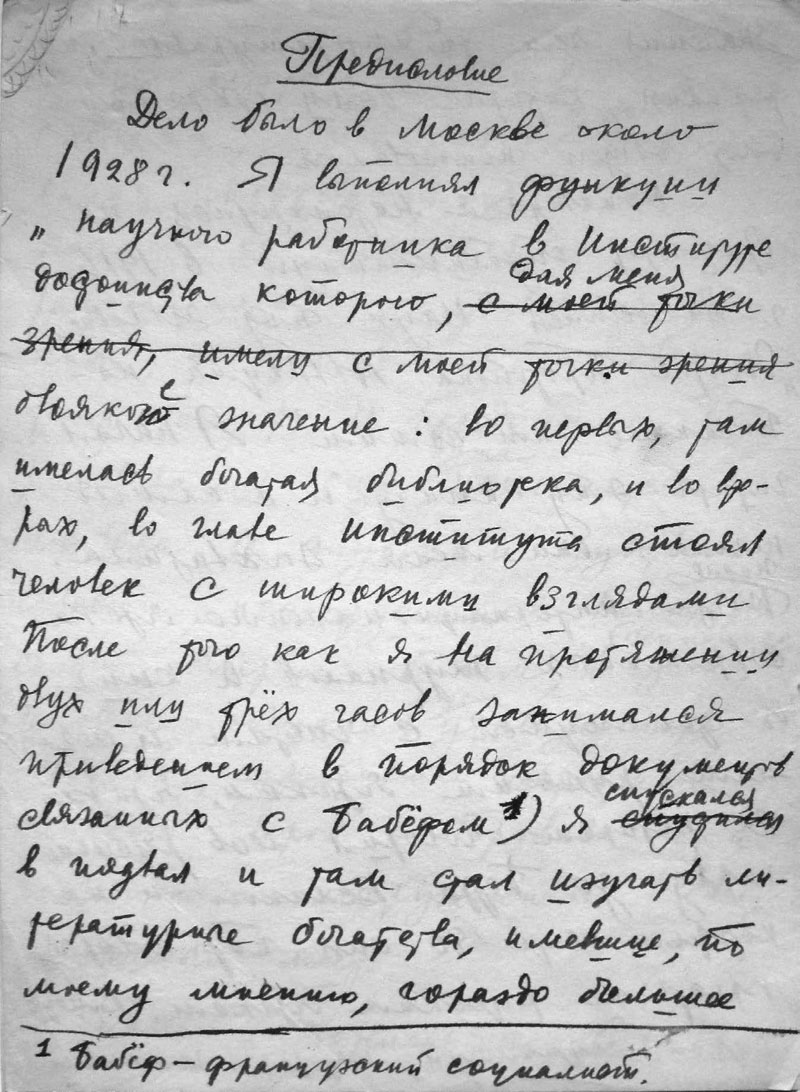 Предисловие
Дело было в Москве около
1928 г. Я выполнял функции
„ научного работника в Институте
достоинства которого, с моей точки
для меня
зрения, имели с моей точки зрения
двоякое значение: во первых, там
имелась богатая библиотека, и во вто-
рых, во главе института стоял
человек с широкими взглядами
После того как я на протяжении
двух или трёх часов занимался
приведением в порядок документов
связанных с Бабёфом 1) я спустился
спускался
в подвал и там стал изучать ли-
тературные богатства, имевшие, по
моему мнению, гораздо большее
1 Бабёф – французский социалист.